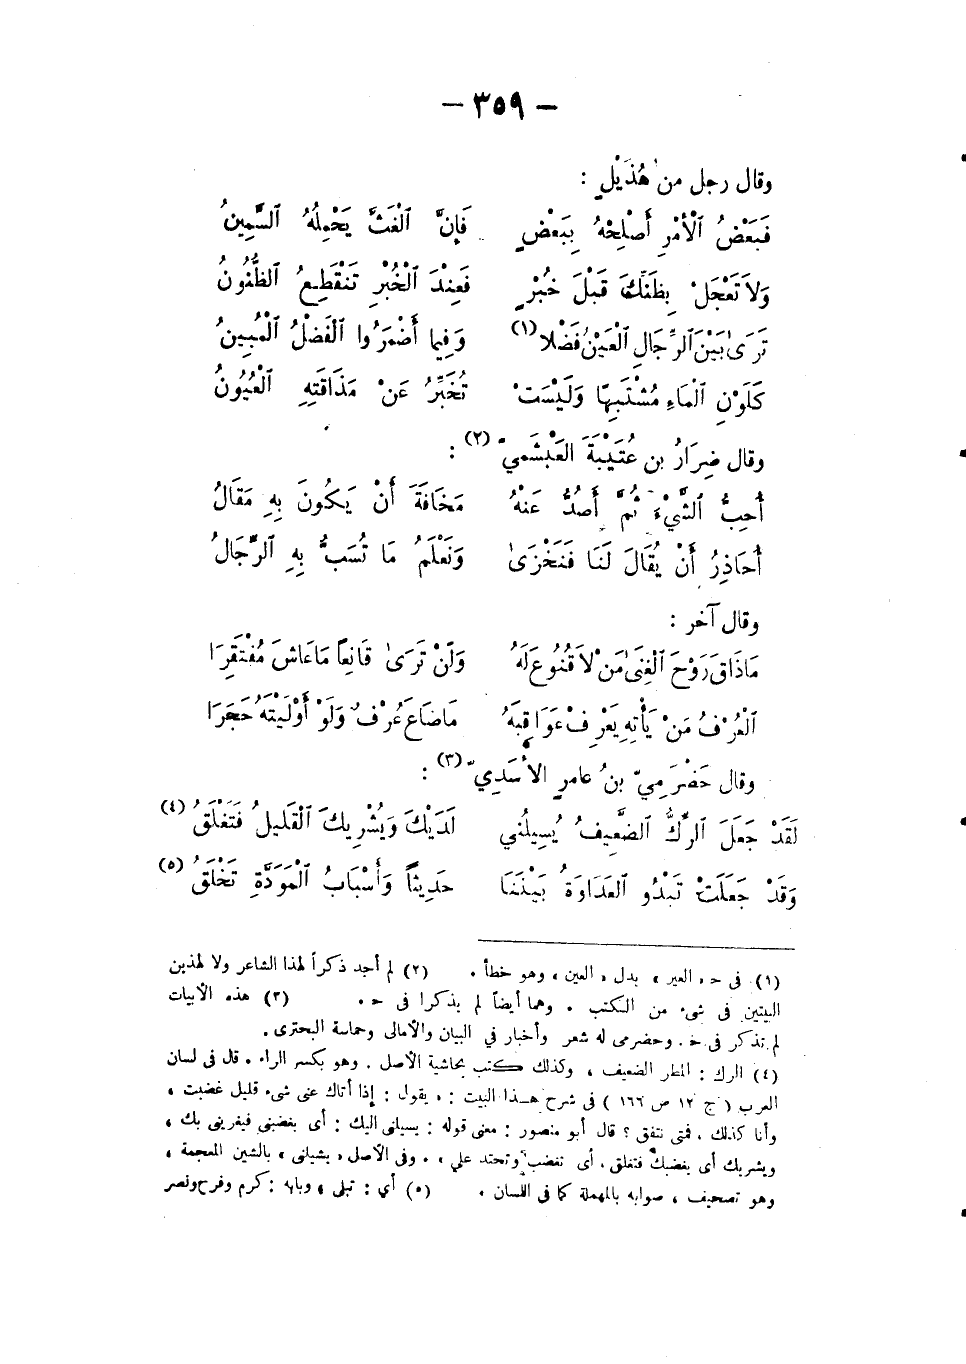 — ٣٥٩ —
وقال رجل من هُذَيْلٍ :
فَبَعْضُ ٱلْأَمْرِ أَصْلِحْهُ بِبَعْضٍ فَإِنَّ ٱلْغَثَّ يَحْمِلُهُ ٱلسَّمِينُ
وَلاَ تَعْجَلْ بِظَنِّكَ قَبْلَ خُبْرٍ فَعِنْدَ ٱلْخُبْرِ تَنْقَطِعُ ٱلظُّنُونُ
تَرَىٰ بَيْنَ ٱلرِّجَالِ ٱلْعَيْنُ فَضْلا (١) وَفِيما أَضْمَرُوا ٱلْفَضْلُ ٱلْمُبِينُ
كَلَوْنِ ٱلْمَاءِ مُشْتَبِهًا وَلَيْسَتْ تُخَبِّرُ عَنْ مَذَاقَتِهِ ٱلْعُيُونُ
وقال ضِرَارُ بن عُتَيْبَةَ العَبْشَمِيّ (٢) :
أُحِبُّ ٱلشَّيْءَ ثُمَّ أَصُدُّ عَنْهُ مَخَافَةَ أَنْ يَكُونَ بِهِ مَقَالُ
أُحَاذِرُ أَنْ يُقَالَ لَنَا فَنَخْزَىٰ وَنَعْلَمُ مَا تُسَبُّ بِهِ ٱلرِّجَالُ
وقال آخر :
مَاذَاقَ رَوْحَ ٱلْغِنَىٰ مَنْ لاَ قُنُوعَ لَهُ وَلَنْ تَرَىٰ قَانِعًا مَاعَاشَ مُفْتَقِرَا
ٱلْعُرْفُ مَنْ يَأْتِهِ يَعْرِفْ عَوَاقِبَهُ مَاضَاعَ عُرْفٌ وَلَوْ أَوْلَيْتَهُ حَجَرَا
وقال حَضْرَمِيّ بنُ عامرٍ الأسَدِيّ (٣) :
لَقَدْ جَعَلَ ٱلرِّكُّ ٱلضَّعِيفُ يُسِيلُنِي لَدَيْكَ وَيُشْرِيكَ ٱلْقَلِيلُ فَتَغْلَقُ (٤)
وَقَدْ جَعَلَتْ تَبْدُو ٱلعَدَاوَةُ بَيْنَنَا حَدِيثًا وَأَسْبَابُ ٱلْمَوَدَّةِ تَخْلَقُ (٥)
(١) فى ح « العير » بدل « العين » وهو خطأ . (٢) لم أجد ذكراً لهذا الشاعر ولا لهذين
البيتين فى شىء من الكتب . وهما أيضاً لم يذكرا فى ح . (٣) هذه الأبيات
لم تذكر فى ح . وحضرمى له شعر وأخبار في البيان والأمالى وحماسة البحترى .
(٤) الرك : المطر الضعيف ، وكذلك كتب بحاشية الأصل . وهو بكسر الراء . قال فى لسان
العرب ( ج ١٢ ص ١٦٦ ) فى شرح هـذا البيت : « يقول : إذا أتاك عنى شىء قليل غضبت ،
وأنا كذلك ، فمتى نتفق ؟ قال أبو منصور : معنى قوله : يسيلنى اليك : أى يغضبنى فيغرينى بك ،
ويشريك أى يغضبك فتغلق ، أى تغضب وتحتد علي » . وفى الأصل « يشيلنى » بالشين المعجمة ،
وهو تصحيف ، صوابه بالمهملة كما فى اللسان . (٥) أي : تبلى ، وبابه : كرم وفرح ونصر